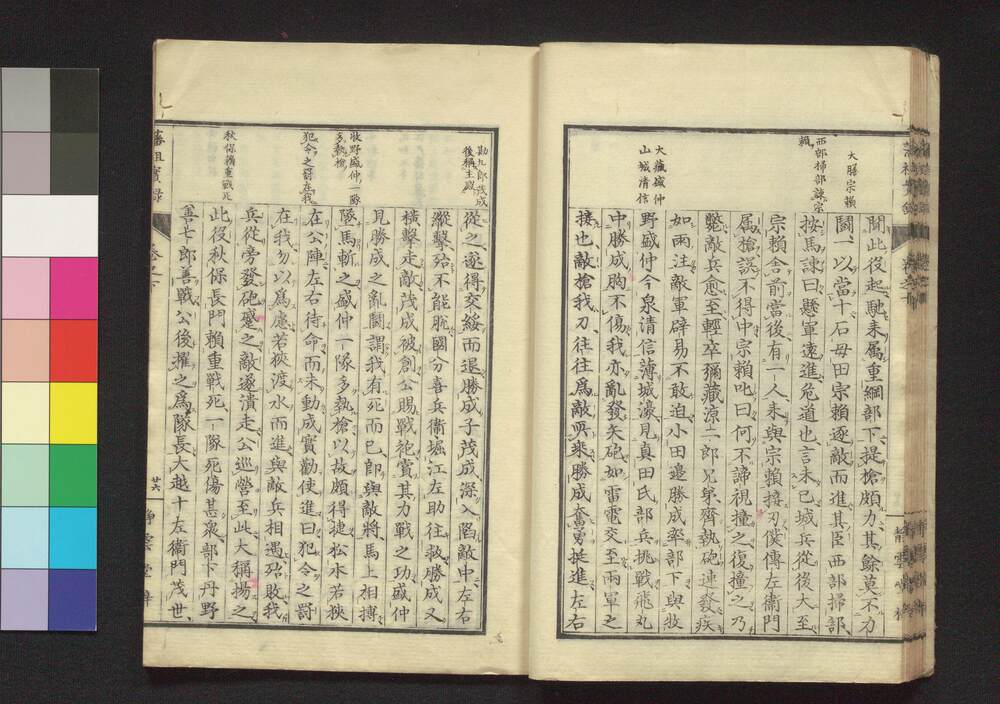 大膳宗賴
西郎掃部諫宗
賴
大藏盛仲
山城清信
聞此役起馳来属重綱部下提槍頗力其餘莫不力
鬪一以當十石毋田宗賴逐敵而進其臣西部掃部
按馬諫曰懸軍遠進危道也言未已城兵從後大至
宗賴舍前當後有一人来與宗賴接刃僕傳左衞門
属槍誤不得中宗賴叱曰何不諦視撞之復撞之乃
斃敵兵愈至輕卒彌藏涼二郎兄弟齊執砲連發疾
如雨注敵軍辟易不敢迫小田邉勝成率部下與牧
野盛仲今泉清信薄城濠見真田氏部兵挑戰飛丸
中勝成胸不傷我亦亂發矢砲如雷電交至兩軍之
接也敵槍我刀往往爲敵所乗勝成奮勇挺進左右
勘九郎茂成
後稱主殿
牧野盛仲一隊
多執槍
犯令之罸在我
秋保賴重戰死
從之遂得交綏而退勝成子茂成深入陷敵中左右
縱擊殆不能脫國分喜兵衞堀江左助往救勝成又
橫擊走敵茂成被創公賜戰袍賞其力戰之功盛仲
見勝成之亂鬪謂我有死而已卽與敵將馬上相搏
墜馬斬之盛仲一隊多執槍以故頗得捷松水若狹
在公陣左右待命而未動成實勸使進曰犯令之罸
在我勿以爲慮若狹渡水而進與敵兵相遇殆敗我
兵從旁發砲蹙之敵遂潰走公巡營至此大稱揚之
此役秋保長門賴重戰死一隊死傷甚衆部下丹野
善七郎善戰公後擢之爲隊長大越十左衞門茂世
藩祖實錄
卷之下
廿六
靜雲堂